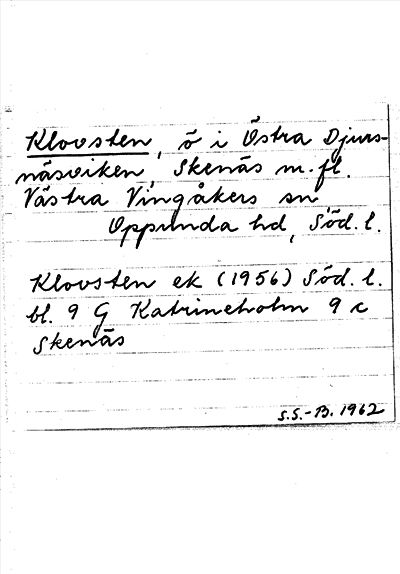 Klovsten, ö i Östra Djurs-
näsviken, Skenäs m.fl.
Västra Vingåkers sn,
Oppunda hd, Söd. l.
Klovsten ek (1956) Söd. l.
bl. 9 G Katrineholm 9 c
Skenäs
S.S.-B. 1962